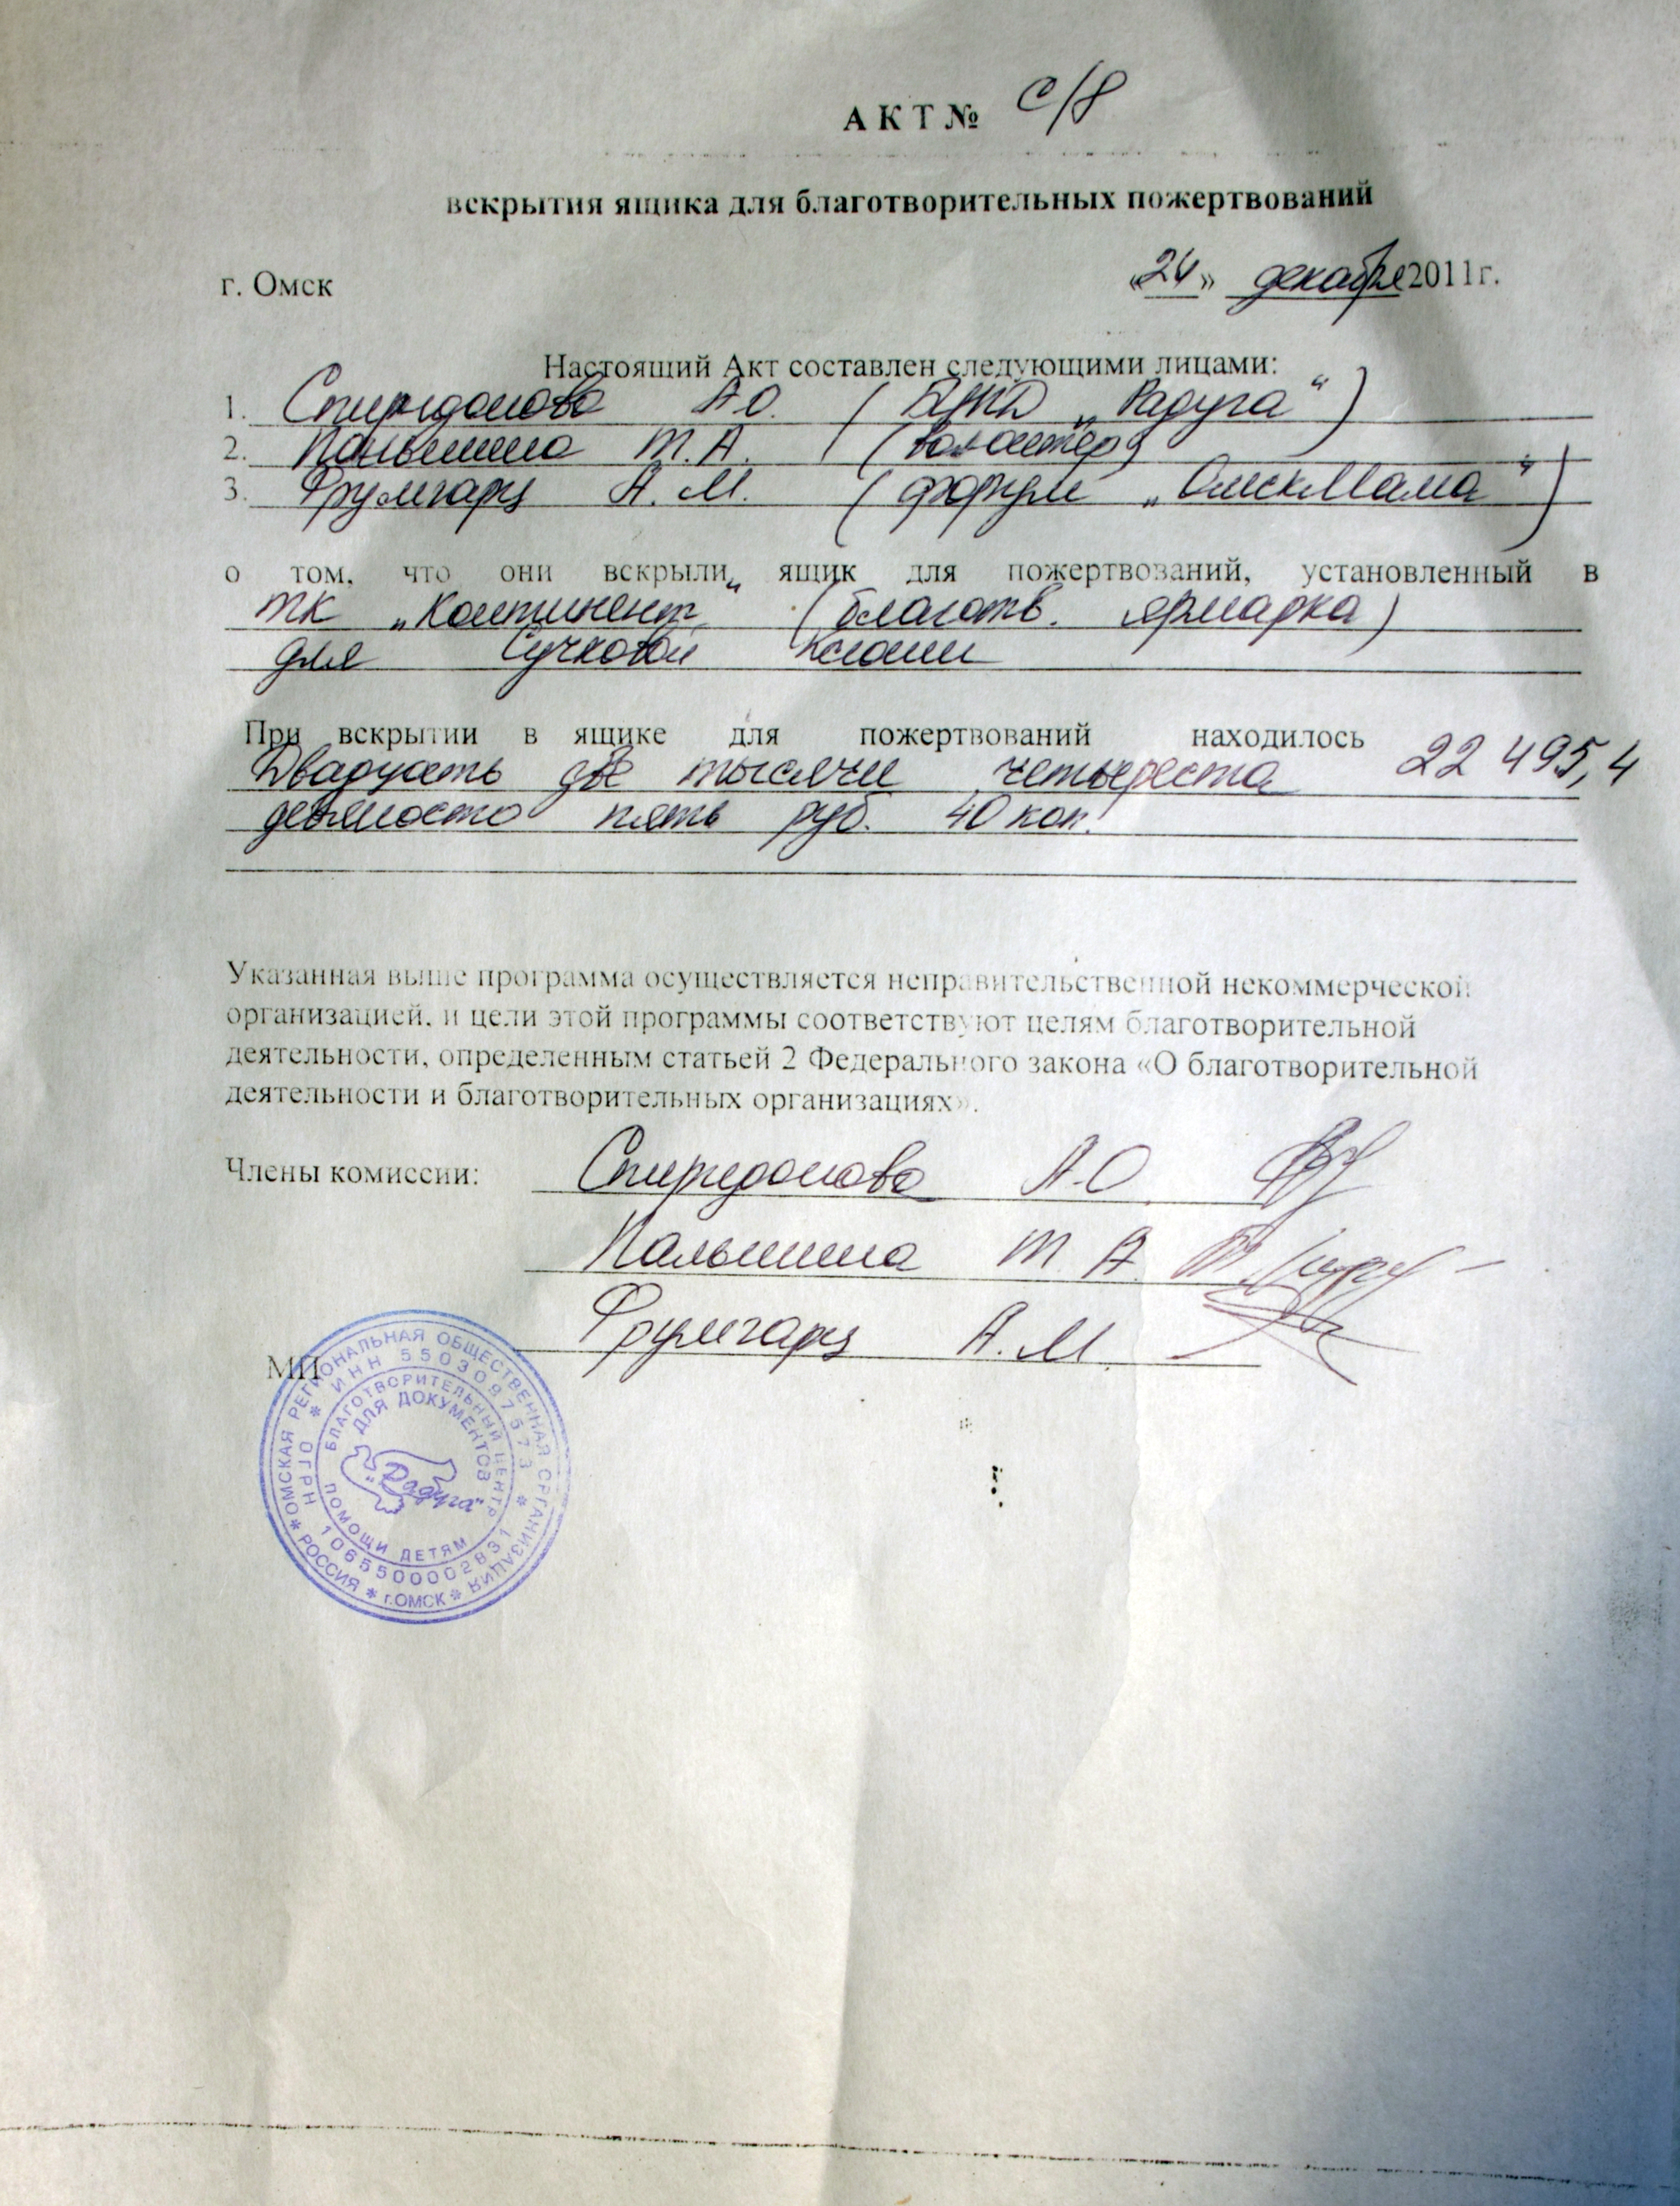 АКТ № С/8
вскрытия ящика для благотворительных пожертвований
г. Омск «24» декабря 2011г.
Настоящий Акт составлен следующими лицами:
1. Спиридонова А.О. (БЦПД „Радуга“)
2. Паньшина Т.А. (волонтер)
3. Фрумгарц А.М. (форум „ОмскМама“)
о том, что они вскрыли ящик для пожертвований, установленный в
ТК „Континент“ (благотв. ярмарка)
для Сучковой Ксении
При вскрытии в ящике для пожертвований находилось 22 495,4
Двадцать две тысячи четыреста
девяносто пять руб. 40 коп.
Указанная выше программа осуществляется неправительственной некоммерческой
организацией, и цели этой программы соответствуют целям благотворительной
деятельности, определенным статьей 2 Федерального закона «О благотворительной
деятельности и благотворительных организациях».
Члены комиссии: Спиридонова А.О.
Паньшина Т.А.
Фрумгарц А.М.
МП
ОМСКАЯ РЕГИОНАЛЬНАЯ ОБЩЕСТВЕННАЯ ОРГАНИЗАЦИЯ * г.ОМСК * РОССИЯ *
ИНН 5503097573 * ОГРН 1065500002831 *
БЛАГОТВОРИТЕЛЬНЫЙ ЦЕНТР ПОМОЩИ ДЕТЯМ
ДЛЯ ДОКУМЕНТОВ
"Радуга"